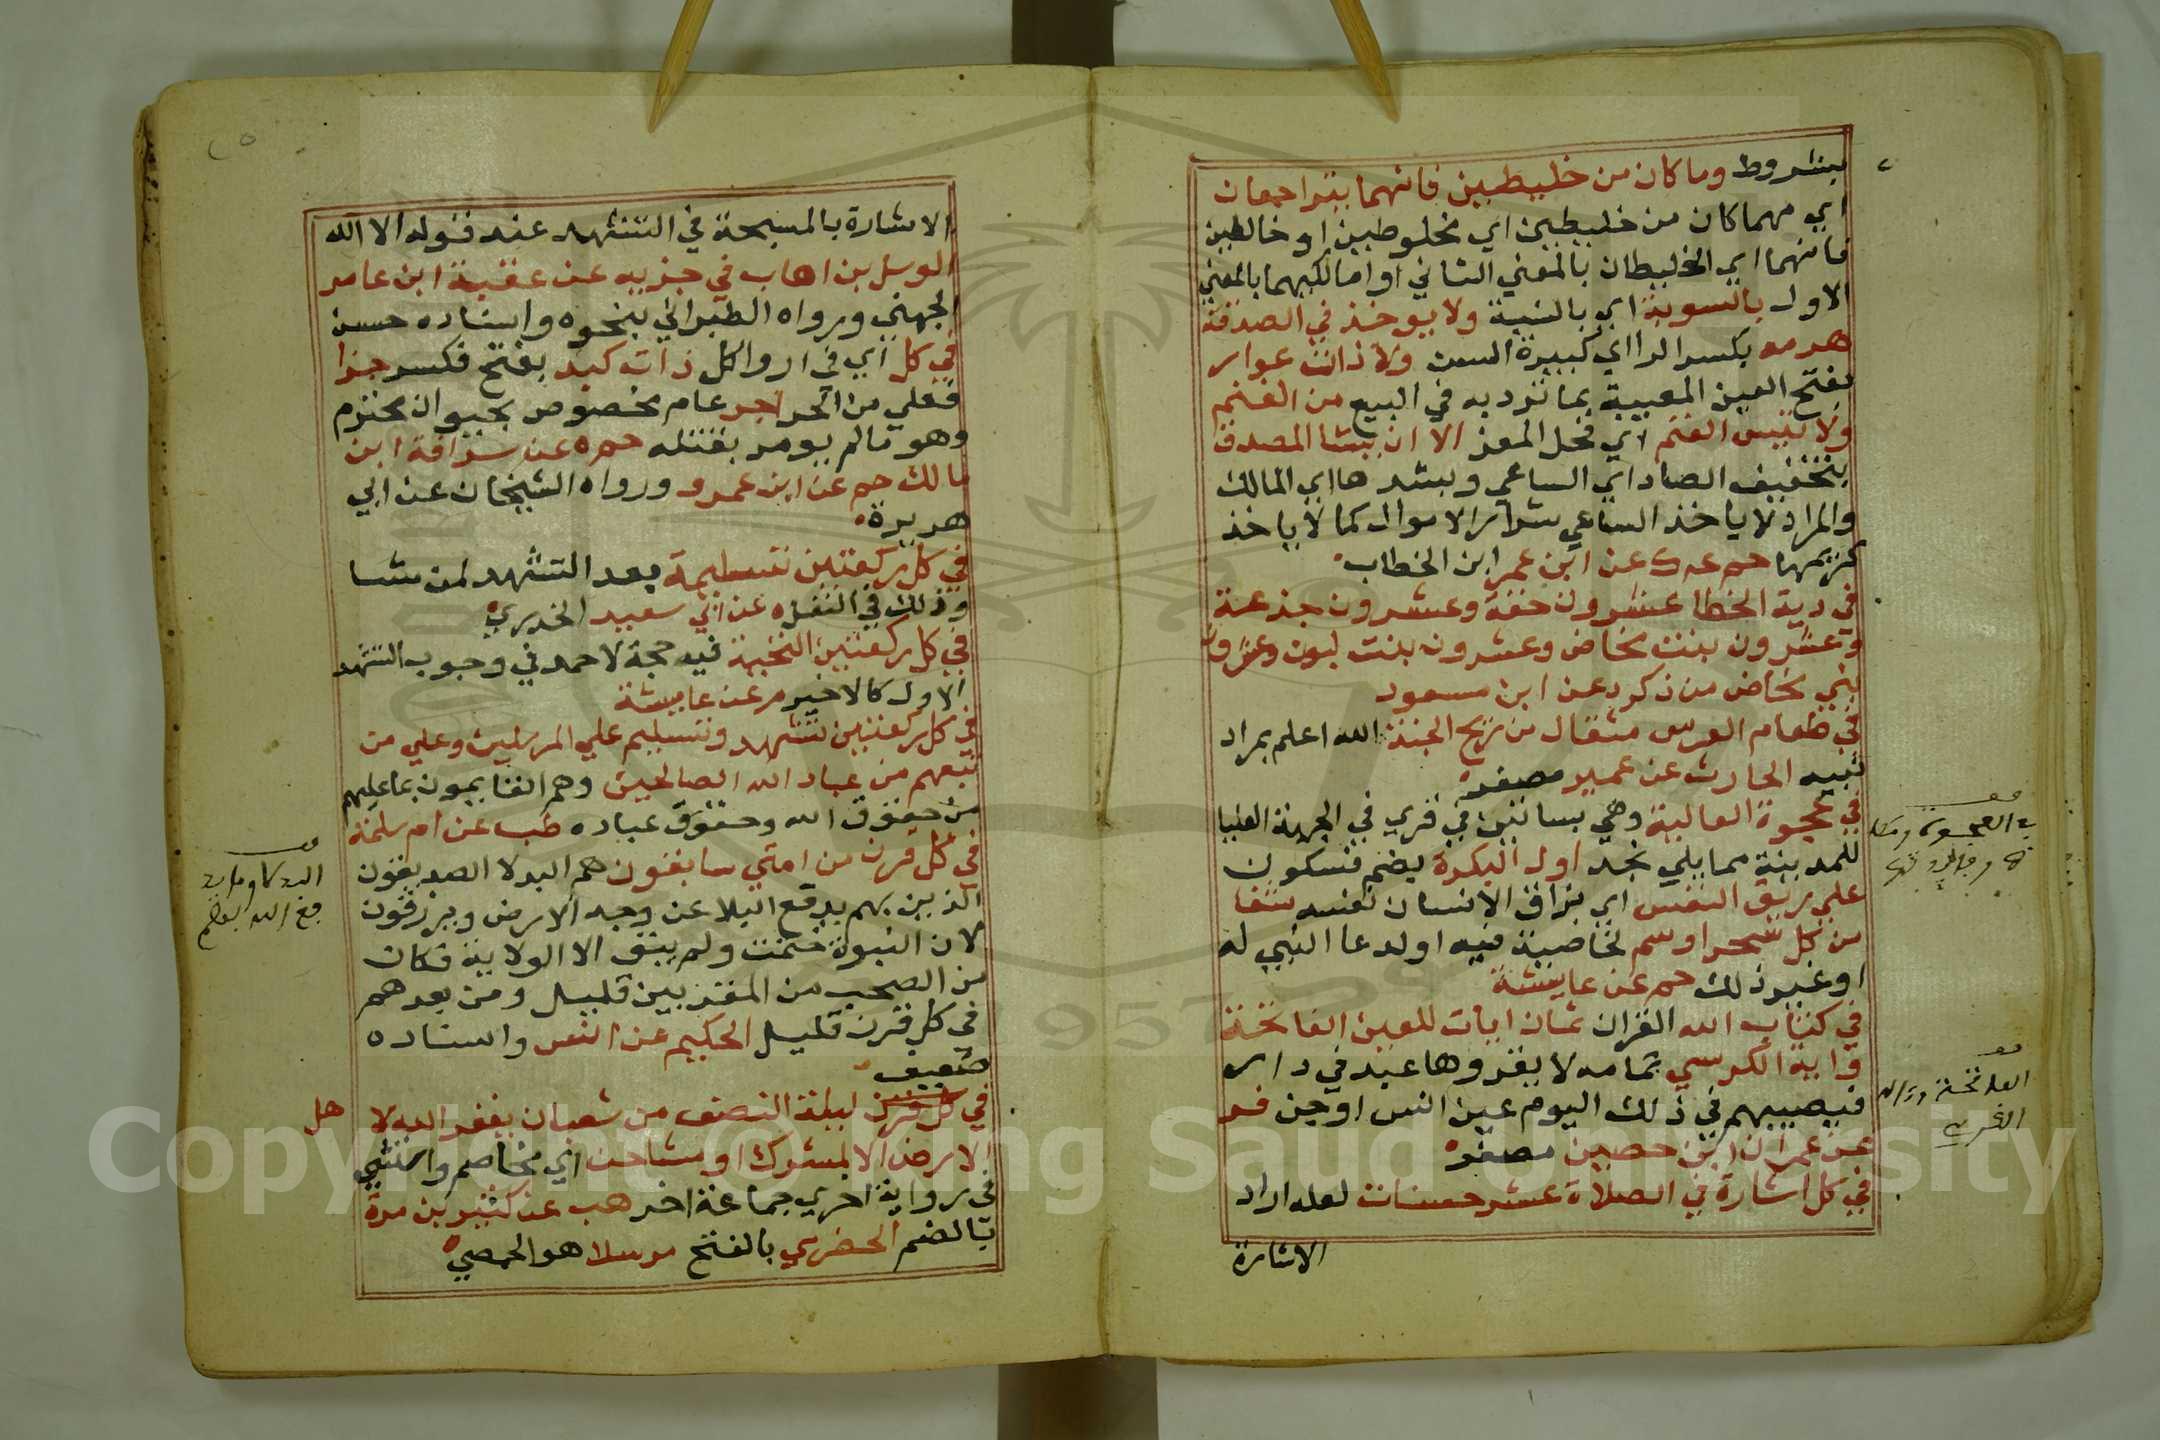 بشروط وما كان من خليطين فانهما يتراجعان
اي مهما كان من خليطين اي مخلوطين او خالطين
فانهما اي الخليطان بالمعني الثاني او امالكيهما بالمعني
الاول بالسوية اي بالنسبة ولا يوخذ في الصدقة
هرمه بكسر الرا اي كبيرة السن ولا ذات عوار
بفتح العين المعيبة بما ترد به في البيع من الغنم
ولا تيس الغنم اي فحل المعز الا ان يشا المصدق
بتخفيف الصاد اي الساعي وبشدها اي المالك
والمراد لا ياخذ الساعي شرار الاموال كما لا ياخذ
كريمها حم عه ك عن ابن عمر ابن الخطاب
في دية الخطا عشرون حقة وعشرون جذعة
وعشرون بنت مخاض وعشرون بنت لبون وعشرون
بني مخاض من ذكر د عن ابن مسعود
في طعام العرس مثقال من ريح الجنة الله اعلم بمراد
نبيه الحارث عن عمير مصغر
في عجوة العالية وهي بساتين في قري في الجهة العليا
للمدينة مما يلي نجد اول البكرة بضم فسكون
علي ريق النفس اي بزاق الانسان نفسه شفا
من كل سحر او سم لخاصية فيه او لدعا النبي له
او غير ذلك حم عن عايشة
في كتاب الله القران ثمان ايات للعين الفاتحة
واية الكرسي تمامه لا يقروها عبد في دار
فيصيبهم في ذلك اليوم عين انس او جن فر
عن عمران ابن حصين مصغر
في كل اشارة في الصلاة عشر حسنات لعله اراد
الاشارة
الاشارة بالمسبحة في التشهد عند قوله الا الله
الموسل بن اهاب في جزيه عن عقبة ابن عامر
الجهني ورواه الطبراني بنحوه واسناده حسن
في كل اي في اروا كل ذات كبد بفتح فكسر حرا
فعلي من الحر اجر عام مخصوص بحيوان محترم
وهو مالم يومر بقتله حم ه عن سراقة ابن
مالك حم عن ابن عمرو ورواه الشيخان عن ابي
هريرة
في كل ركعتين تسليمة بعد التشهد لمن شا
وذلك في النفل ه عن ابي سعيد الخدري
في كل ركعتين التحية فيه حجة لاحمد في وجوب التشهد
الاول كالاخير م عن عايشة
في كل ركعتين تشهد وتسليم علي المرسلين وعلي من
تبعهم من عباد الله الصالحين وهم القايمون بما عليهم
من حقوق الله وحقوق عباده طب عن ام سلمة
في كل قرن من امتي سابقون هم البدلا الصديقون
الذين بهم يدفع البلا عن وجه الارض ويرزقون
لان النبوة ختمت ولم يبق الا الولاية فكان
من الصحب من المقربين قليل ومن بعدهم
في كل قرن قليل الحكيم عن انس واسناده
ضعيف
في كل قرن ليلة النصف من شعبان يغفر الله لا هل
الارض الا لمشرك او مشاحن اي مخاصم واستثني
في رواية اخري جماعة اخر هب عن كثير بن مرة
بالضم الحضرمي بالفتح مرسلا هو الحمصي